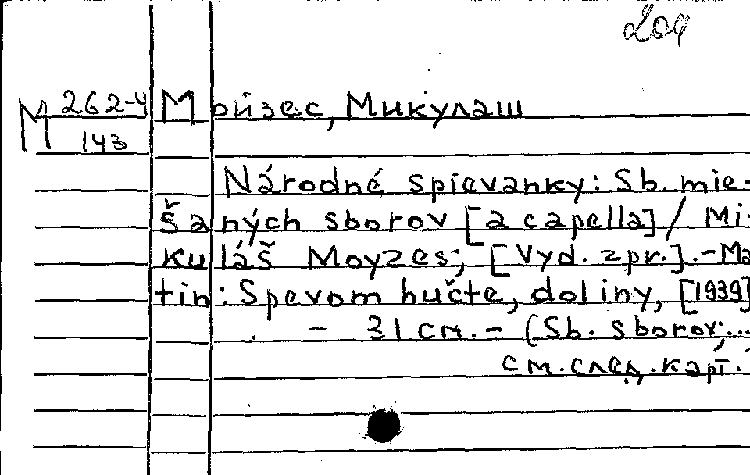 209
М 262-4
143
Мойзес, Микулаш
Národné spievanky: Sb. mie-
šaných sborov [a capella] / Mi-
kuláš Moyzes; [Vyd. zpr.]. - Ma
tin: Spevom hučte, doliny, [1939]
- 31 см. - (Sb. sborov; ...
см. след. карт.